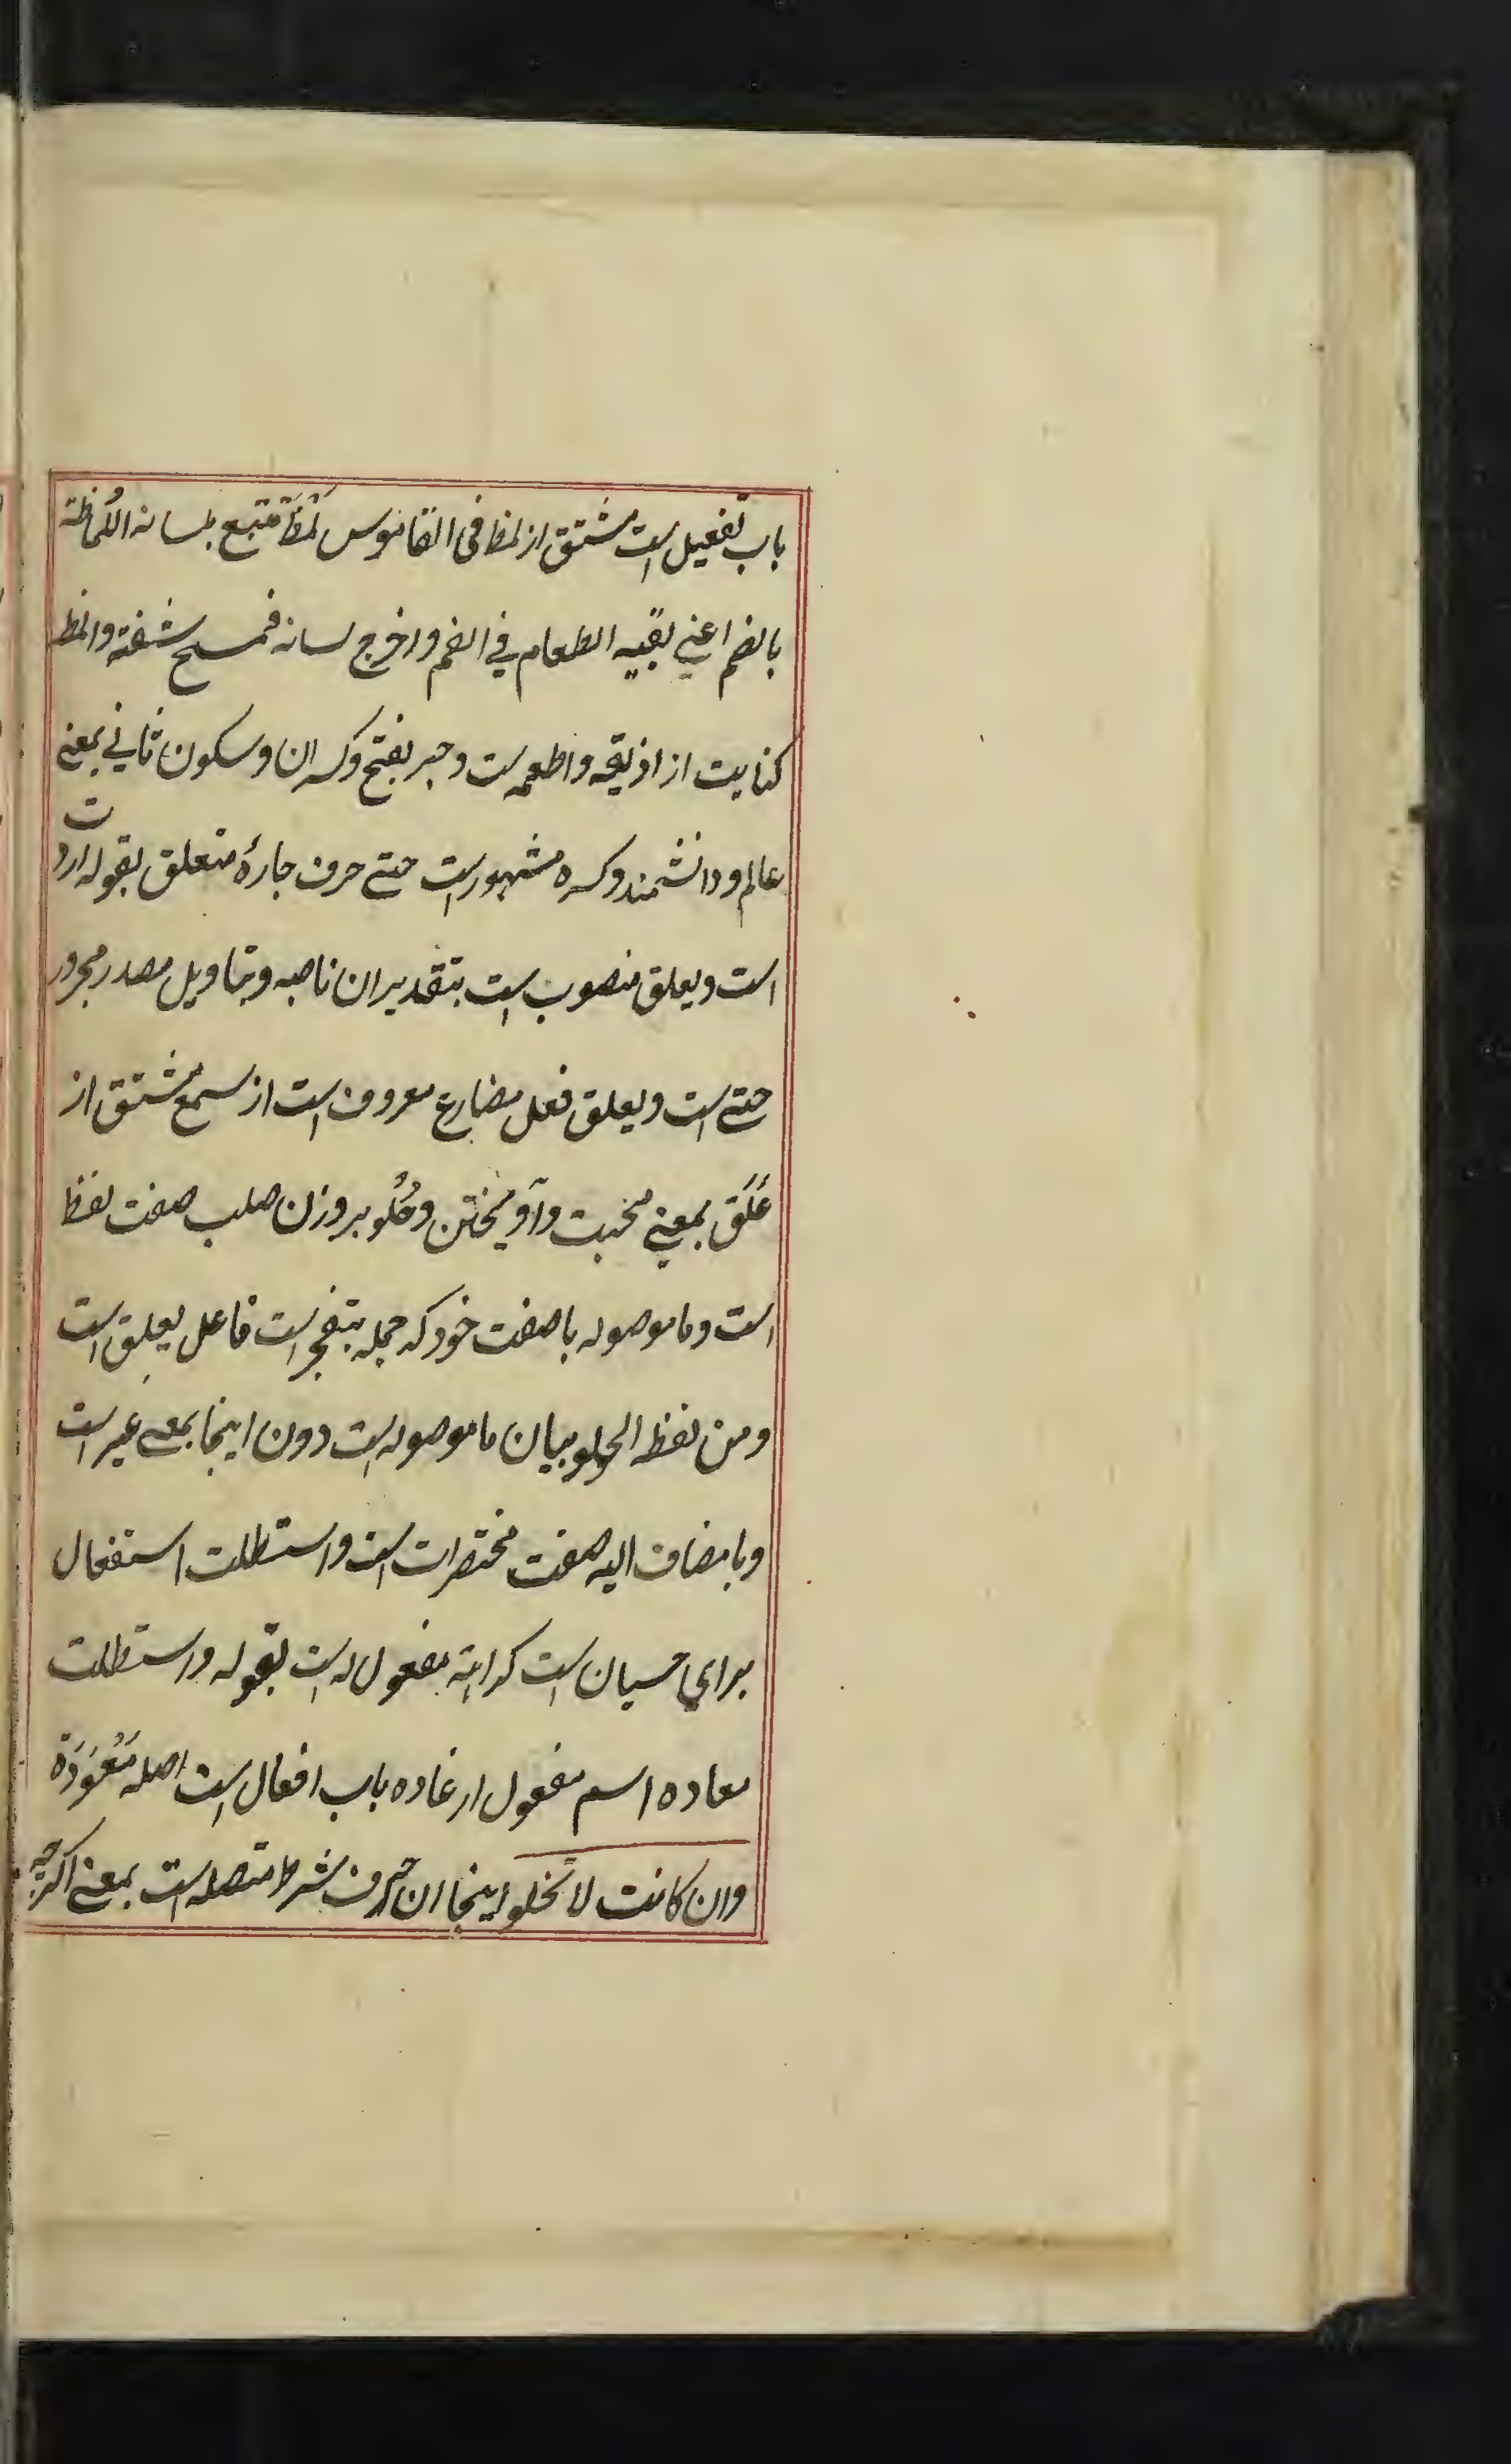 باب تفعیل است مشتق از لمظ فی القاموس لَمَظَ تتبع بلسانه اللُماظة
بالضم اعنی بقیه الطعام فی الفم واخرج لسانه فمسح شفته والمظ
کنایت از اذیقه واطعمه ست وحبر بفتح وکسر ان وسکون ثانی بمعنی
عالم ودانشمند وکسره مشهور است حتی حرف جارهٔ متعلق بقوله اردت
است ویعلق منصوب است بتقدیر ان ناصبه وبتاویل مصدر مجرور
حتی است ویعلق فعل مضارع معروف است از سمع مشتق از
عَلَق بمعنی محبت وآویختن وحُلُو بر وزن صلب صفت لفظ
است وما موصوله با صفت خود که جمله یتفجر است فاعل یعلق است
ومن لفظ الحلو بیان ما موصوله است دون اینجا بمعنی غیر است
وبا مضاف الیه صفت مختصرات است واستطلت استفعال
برای حسبان است کراهة مفعول له است بقوله واستطلت
معاده اسم مفعول از عاده باب افعال است اصله مَعْوَدَة
وان کانت لا تخلو اینجا ان حرف شرط متصله است بمعنی اگرچه